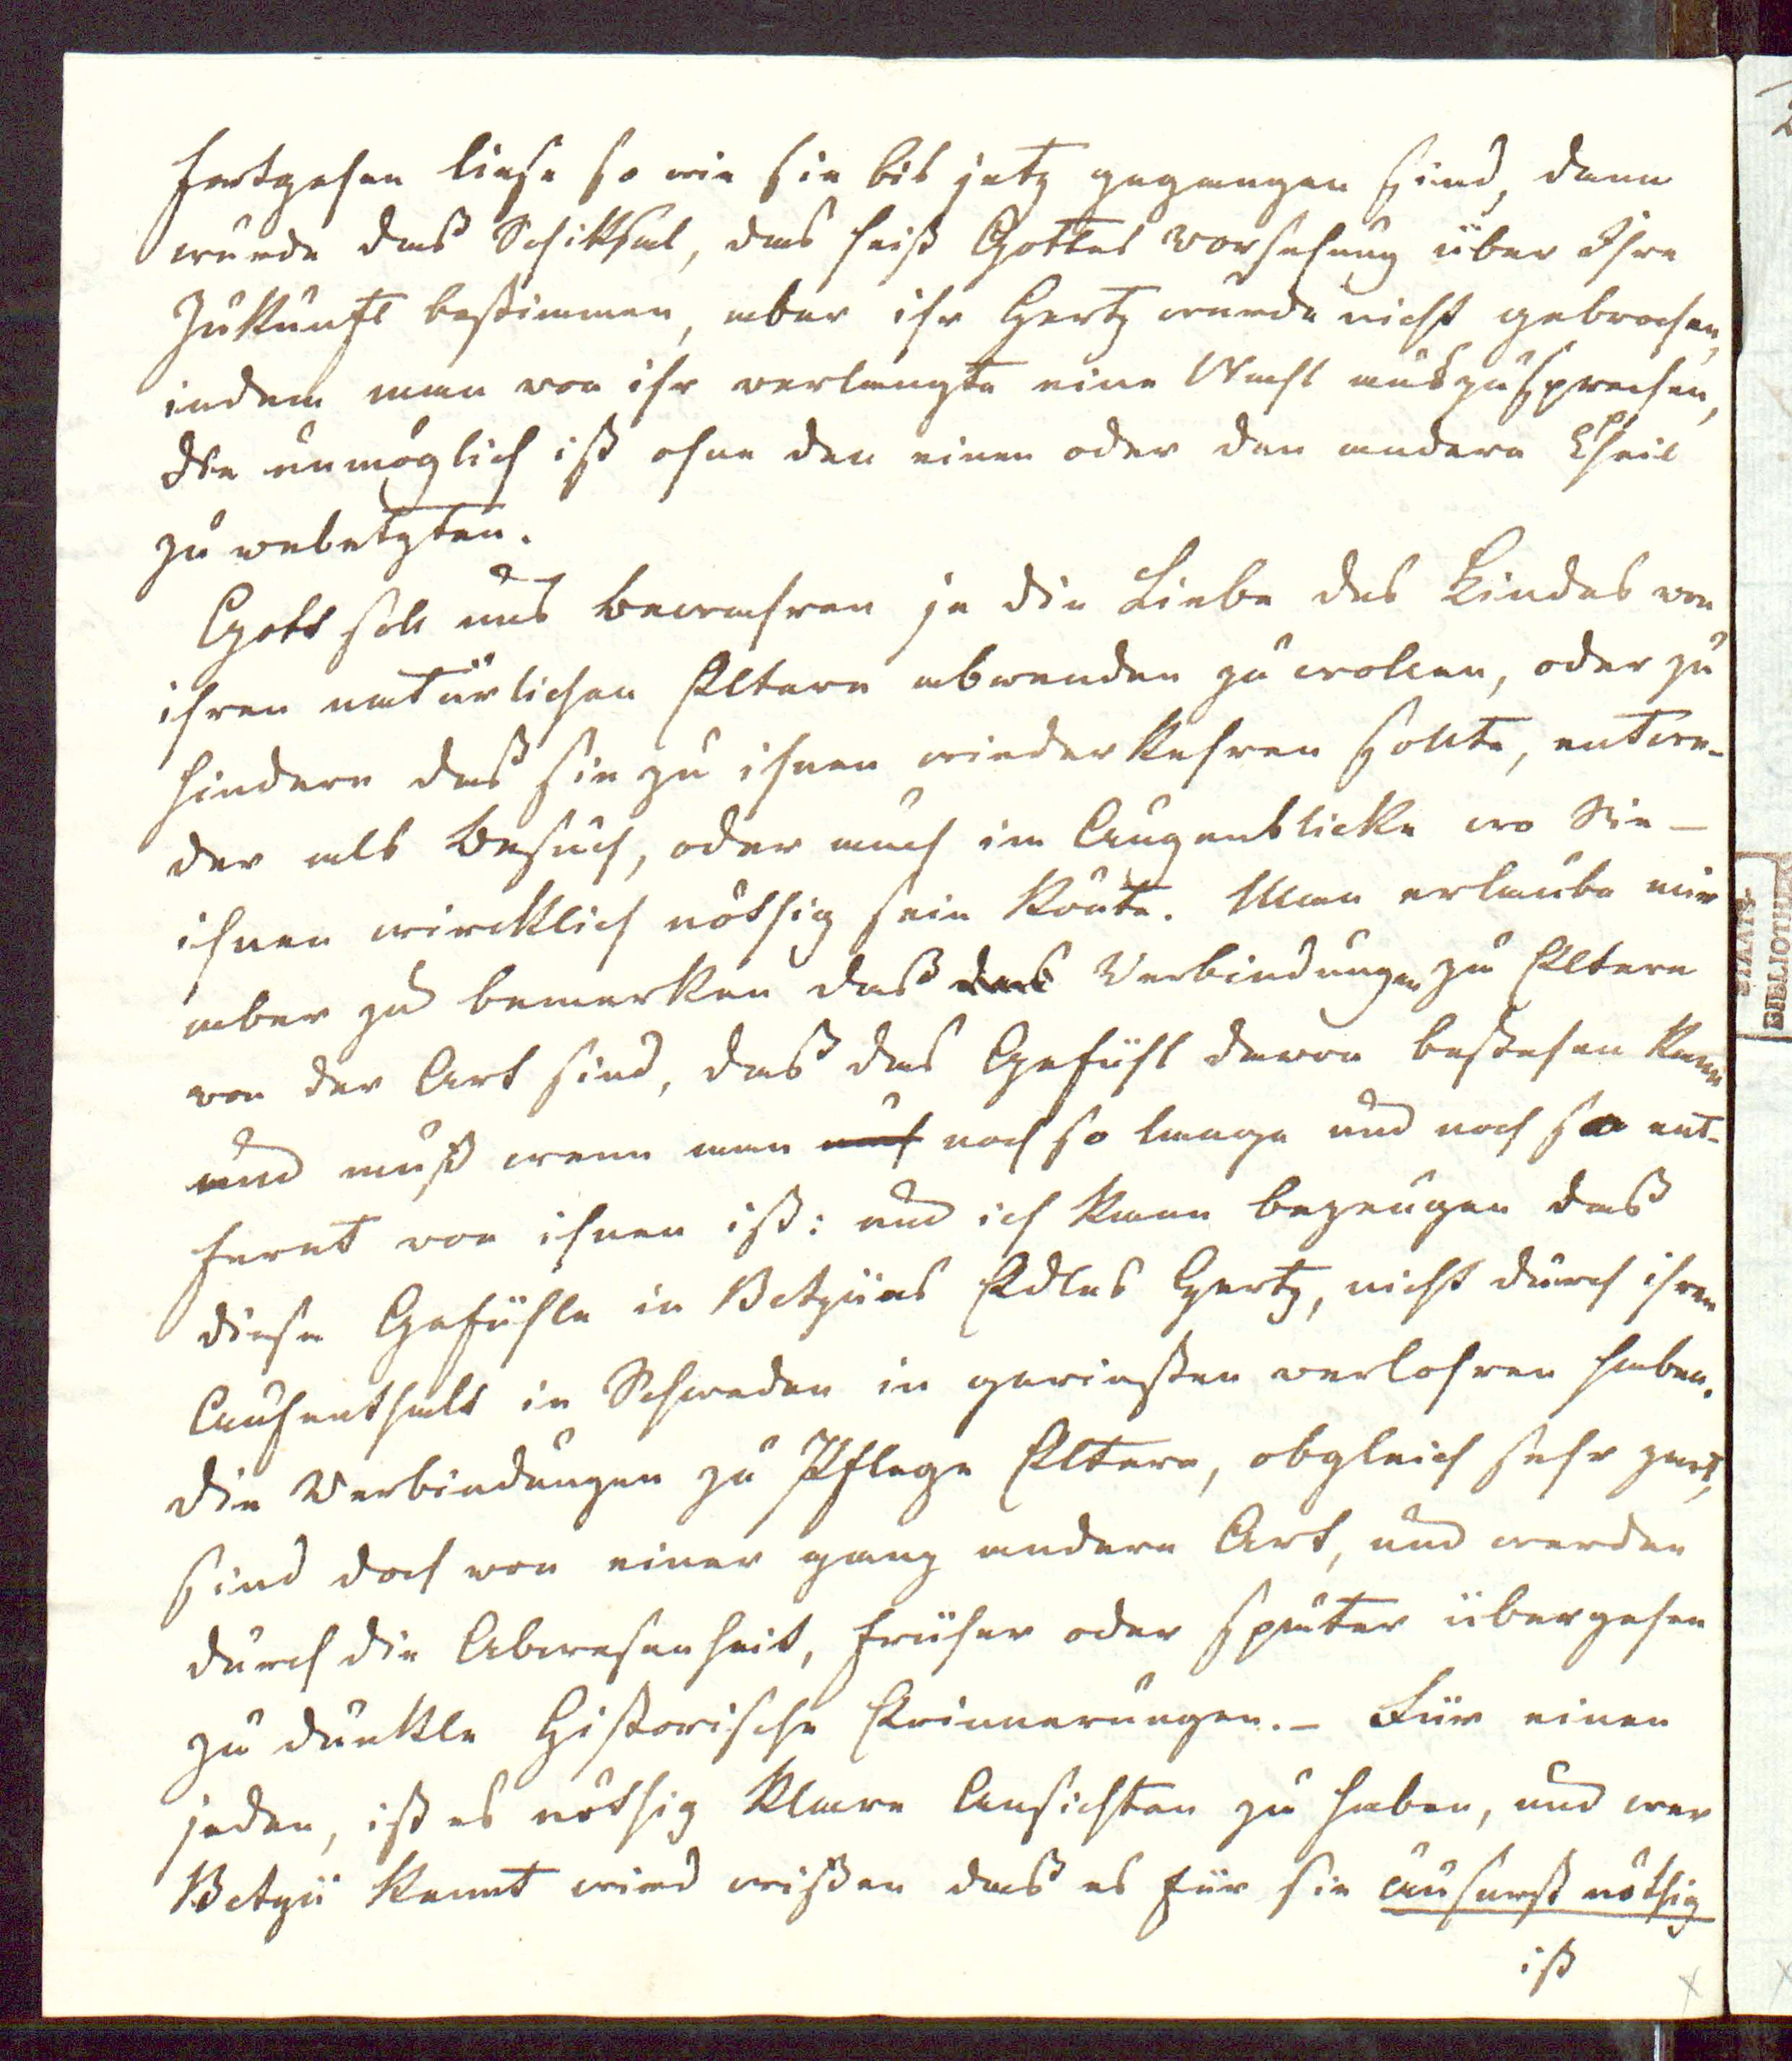 fortgehen liese so wie sie bis jetz gegangen sind, dann
wurde daß Schiksal, das heiß Gottes Vorsehung über Ihre
Zukunft bestimmen, aber ihr Hertz wurde nicht gebrochen,
indem man von ihr verlangte eine Wahl auszusprechen,
die unmöglich ist ohne den einen oder den andern Theil
zu verletzten.
Gott soll uns bewahren je die Liebe des Kindes von
ihren natürlichen Eltern abwenden zu wollen, oder zu
hindern daß sie zu ihnen wiederkehren sollte, entwe-
der als Besuch, oder auch im Augenblicke wo Sie –
ihnen wircklich nöthig sein könte. Man erlaube mir
aber zu bemerken daß das Verbindungen zu Eltern
von der Art sind, daß das Gefühl davon bestehen kann
und muß wenn man auch noch so lange und noch so ent-
fernt von ihnen ist: und ich kann bezeugen daß
diese Gefühle in Betzüs Edles Hertz, nicht durch ihren
Aufenthalt in Schweden in geringsten verlohren haben.
die Verbindungen zu Pflege Eltern, obgleich sehr zart,
sind doch von einer ganz andern Art, und werden
durch die Abwesenheit, früher oder später übergehen
zu dunkle Historische Erinnerungen. – Für einen
jeden, ist es nöthig klare Ansichten zu haben, und wer
Betzü kennt wird wißen daß es für sie äuserst nöthig
ist
STAATS-
BIBLIOTHEK